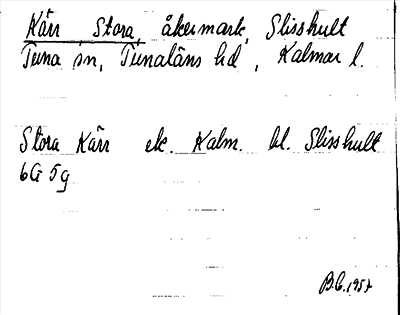 Kärr, Stora, åkermark, Slisshult
Tuna sn, Tunaläns hd, Kalmar l.
Stora Kärr ek. Kalm. bl. Slisshult
6G 5g
B.C. 1957